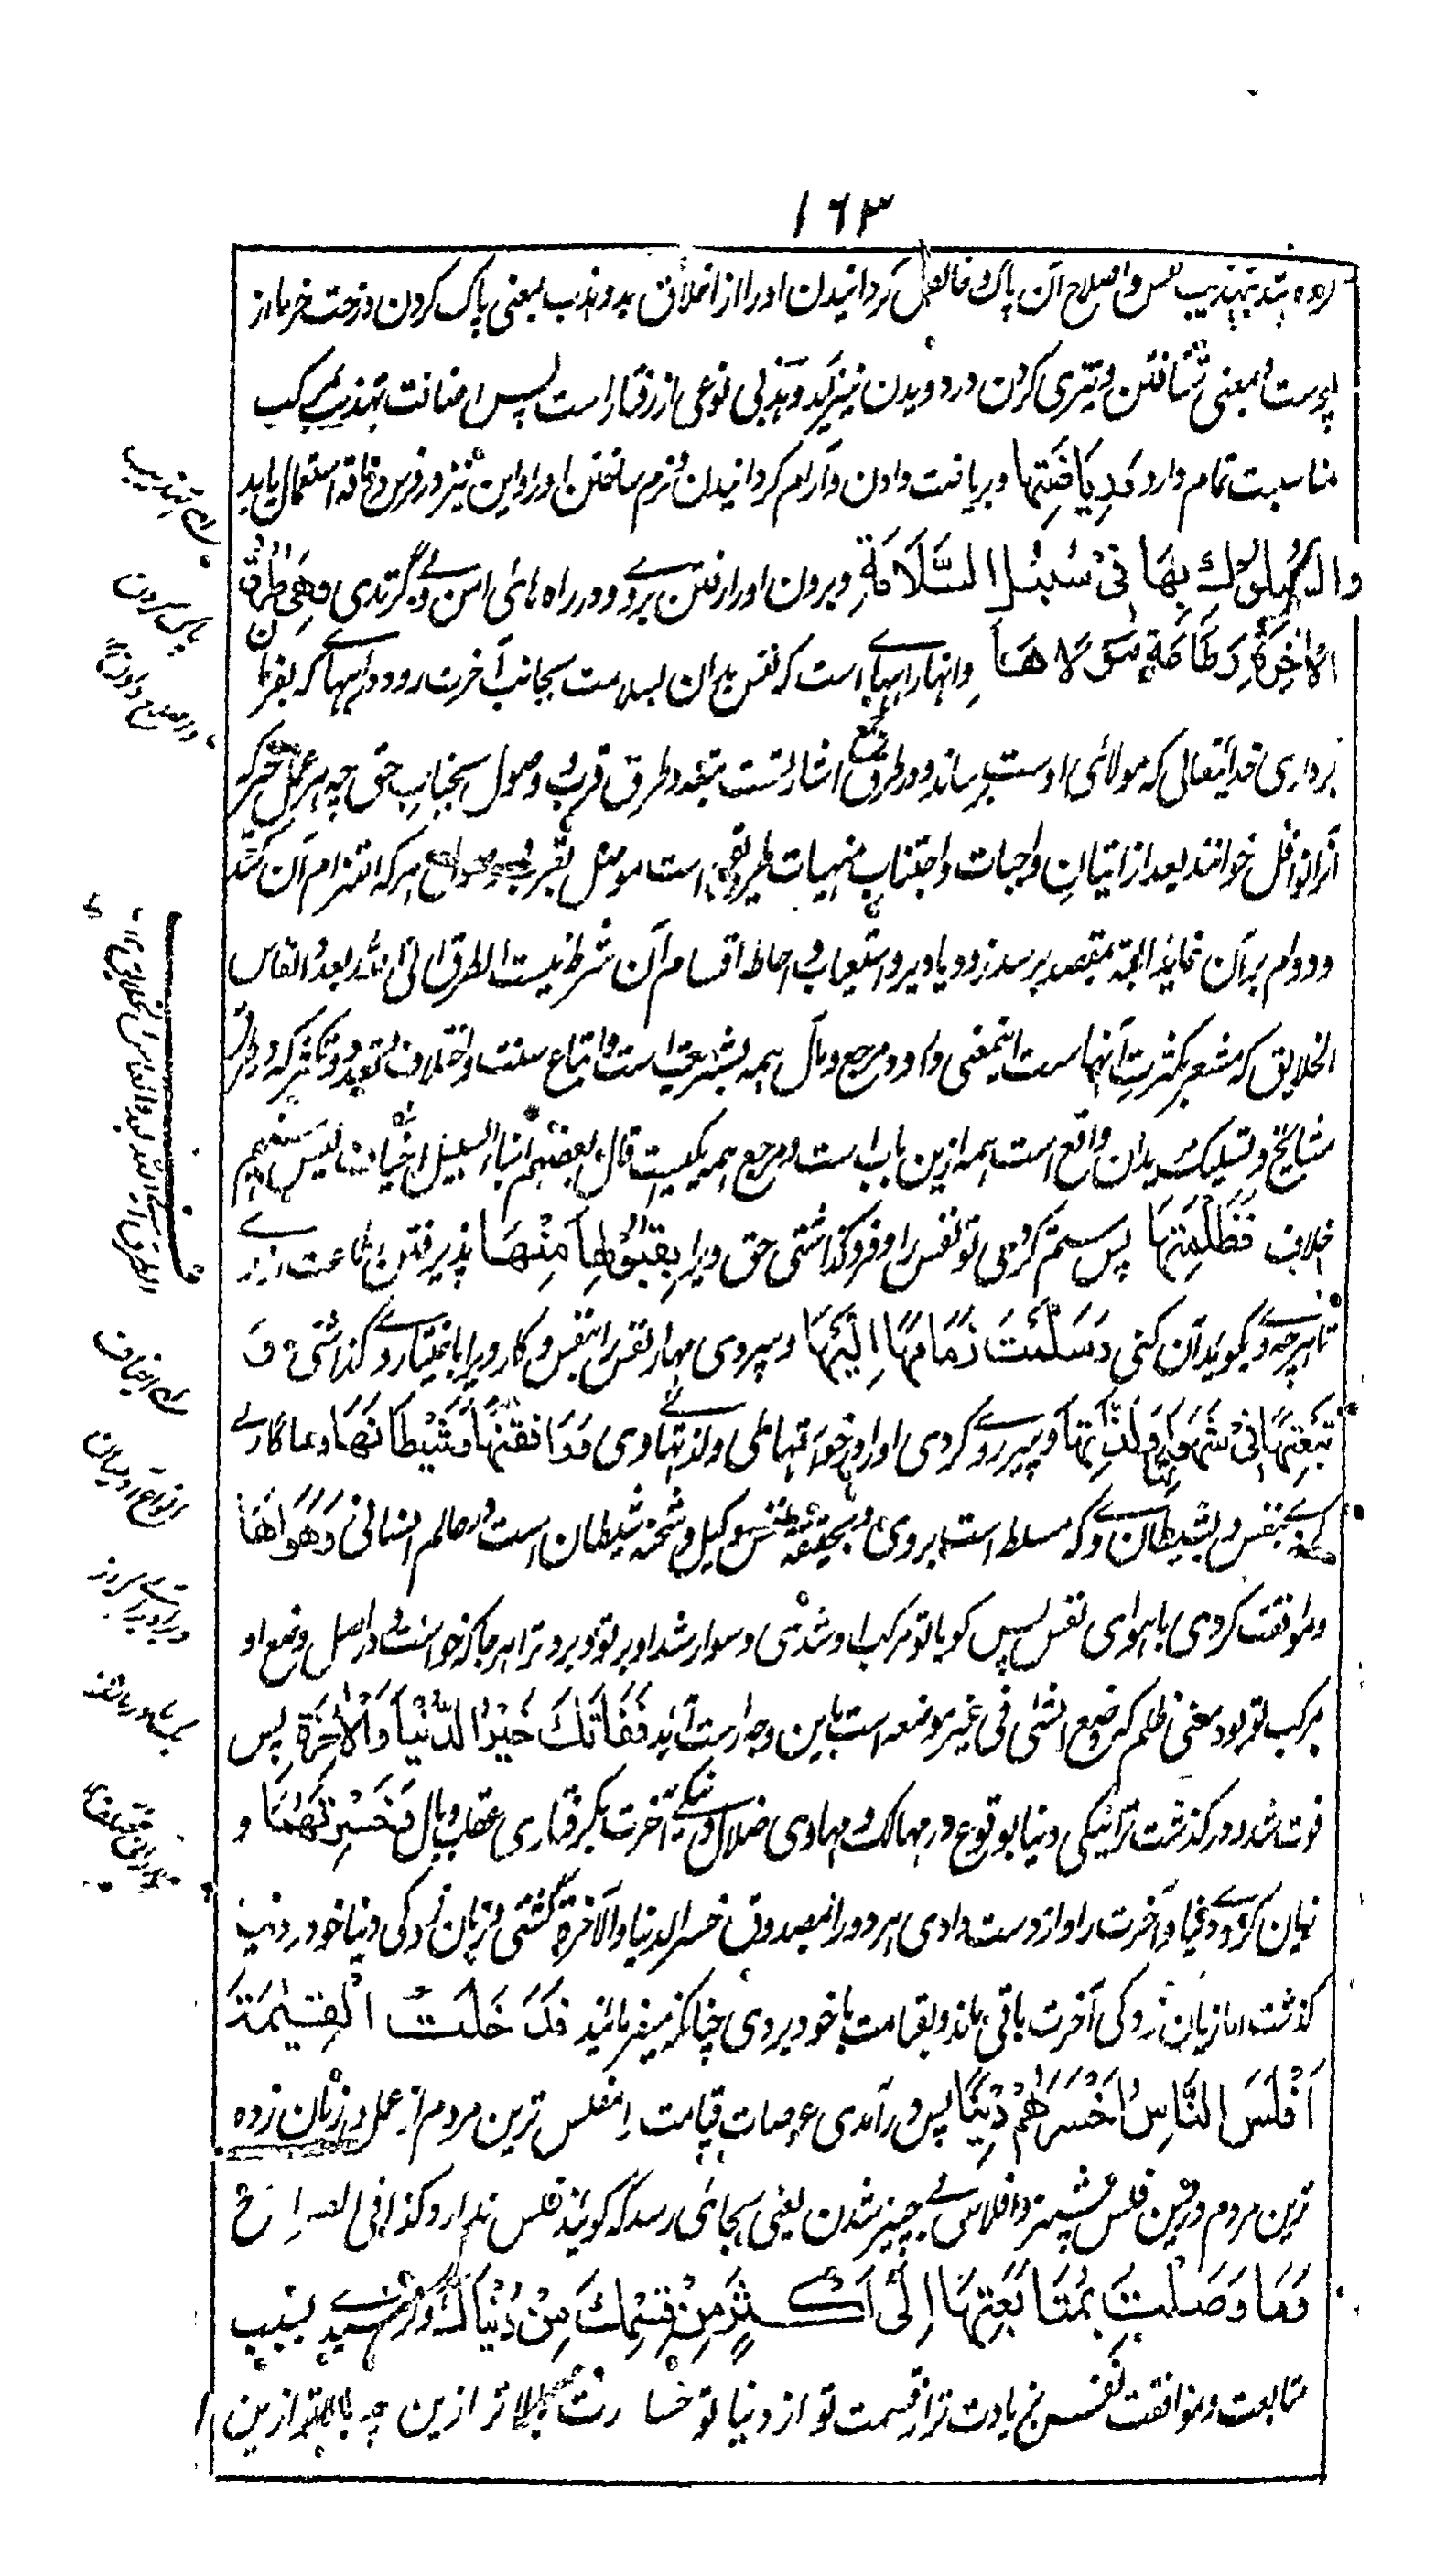 ۱۶۳
کرده شد تهذیب نفس و اصلاح آن پاک و خالص گردانیدن او را از اخلاق بد و هذب بمعنی پاک کردن درخت خرما از
پوست و بمعنی شتافتن و تیزی کردن در دویدن نیز آید و هذبی نوعی از رفتار است پس اضافت تهذیب بمرکب
مناسبت تمام دارد وَرِيَاضَتِهَا و بریاضت دادن و آرام گردانیدن و نرم ساختن او را و این نیز در فرس و ناقه استعمال یابد
وَالسُّلُوْكِ بِهَا فِیْ سُبُلِ السَّلَامَةِ و بردن او را و رفتن بوے در راه های امن و بے گزندی وَهِیَ طُرُقُ
الْاٰخِرَةِ وَطَاعَةِ مَوْلَاهَا و انها راهها است که نفس بدان بسلامت بجانب آخرت رود و راهها که بفرمان
برداری خدایتعالی که مولای اوست برساند و در طرق جمع اشارتست بتعدد طرق قرب و وصول بجناب حق چه هر عمل خیر که
آنرا نوافل خوانند بعد از اتیان واجبات و اجتناب منهیات طریقی است موصل بقرب هر که التزام آن کند
و دوام بر آن نماید البته بمقصد برسد زود یا دیر و استیعاب و احاطه اقسام آن شرط نیست الطرق الی الله بعدد انفاس
الخلایق که مشعر بکثرت آنهاست اینمعنی دارد و مرجع و مآل همه بشریعت است و اتباع سنت و اختلاف و تعدد و تکثر که در طرق
مشایخ و تسلیک مریدان واقع است همه ازین باب است و مرجع همه یکیست قال بعضهم ابناء السبیل اخیاف لیس بینهم
خلاف فَظَلَمْتَهَا پس ستم کردی تو نفس را و فروگذاشتی حق ویرا بِقَبُوْلِهَا مِنْهَا پذیرفتن طاعت از وے
تا هرچه وے گوید آن کنی وَسَلَّمْتَ زِمَامَهَا اِلَيْهَا و سپردی مهار نفس را بنفس و کار ویرا باختیار وے گذاشتی وَ
تَبِعْتَهَا فِیْ شَهَوَاتِهَا وَلَذَّاتِهَا و پیروے کردی او را در خواهشهای وے و لذتهای وی وَوَافَقْتَهَا وَشَيْطَانَهَا و سازگارے
کردے بنفس و بشیطان وے که مسلط است بروی و بحقیقت نفس وکیل و شحنه شیطان است در عالم انسانی وَهَوَاهَا
و موافقت کردی با هوای نفس پس گویا تو مرکب او شدی و سوار شد او بر تو و برد ترا هر جا که خواست و در اصل وضع او
مرکب تو بود معنی ظلم که وضع الشئی فی غیر موضعه است باین وجه راست آید فَفَاتَكَ خَيْرُ الدُّنْيَا وَالْاٰخِرَةِ پس
فوت شد و در گذشت ترا نیکی دنیا بوقوع در مهالک و مهاوی ضلال و نیکے آخرت بگرفتاری عقاب و وبال فَخَسِرْتَهُمَا و
زیان کردے دنیا و آخرت را و از دست دادی هر دو را بمصدوق خسر الدنیا والآخرة گشتی و زیان زدگی دنیا خود در دنیا
گذشت اما زیان زدگی آخرت باقی ماند و بقیامت با خود بردی چنانکه میفرمایند فَدَخَلْتَ الْقِيٰمَةَ
اَفْلَسَ النَّاسِ اَخْسَرَهُمْ دِيْنًا پس در آمدی عرصات قیامت را مفلس ترین مردم از عمل و زیان زده
ترین مردم در دین فلس پشیز و افلاس بے چیز شدن یعنی بجائی رسد که گویند فلس ندارد و کذا فی الصراح
وَمَا وَصَلْتَ بِمُتَابَعَتِهَا اِلٰی اَكْثَرَ مِنْ قِسْمِكَ مِنْ دُنْيَاكَ و نرسیدے بسبب
متابعت و موافقت نفس بزیادت تر از قسمت تو از دنیا تو خسارت بالاتر ازین چه باشد ازین
اے تهذیب
پاک کردن
و اصلاح دادن ۱۲
الطرق الی الله بعدد انفاس الخلایق
اے اخیاف